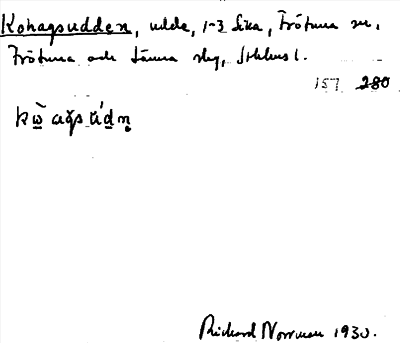 Kohagsudden, udde, 1-3 Sika, Frötuna sn,
Frötuna och Länna slg, Sthlms l.
157 280
Richard Norrman 1930.